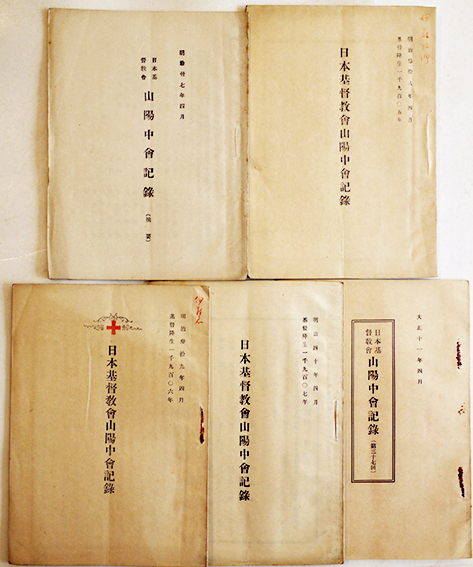 明治卅七年四月
日本基
督教會
山陽中會記錄
（摘要）
明治參拾八年四月
基督降生一千九百〇五年
日本基督教會山陽中會記錄
明治參拾九年四月
基督降生一千九百〇六年
日本基督教會山陽中會記錄
明治四十年四月
基督降生一千九百〇七年
日本基督教會山陽中會記錄
大正十一年四月
日本基
督教會
山陽中會記錄
（第三十七回）